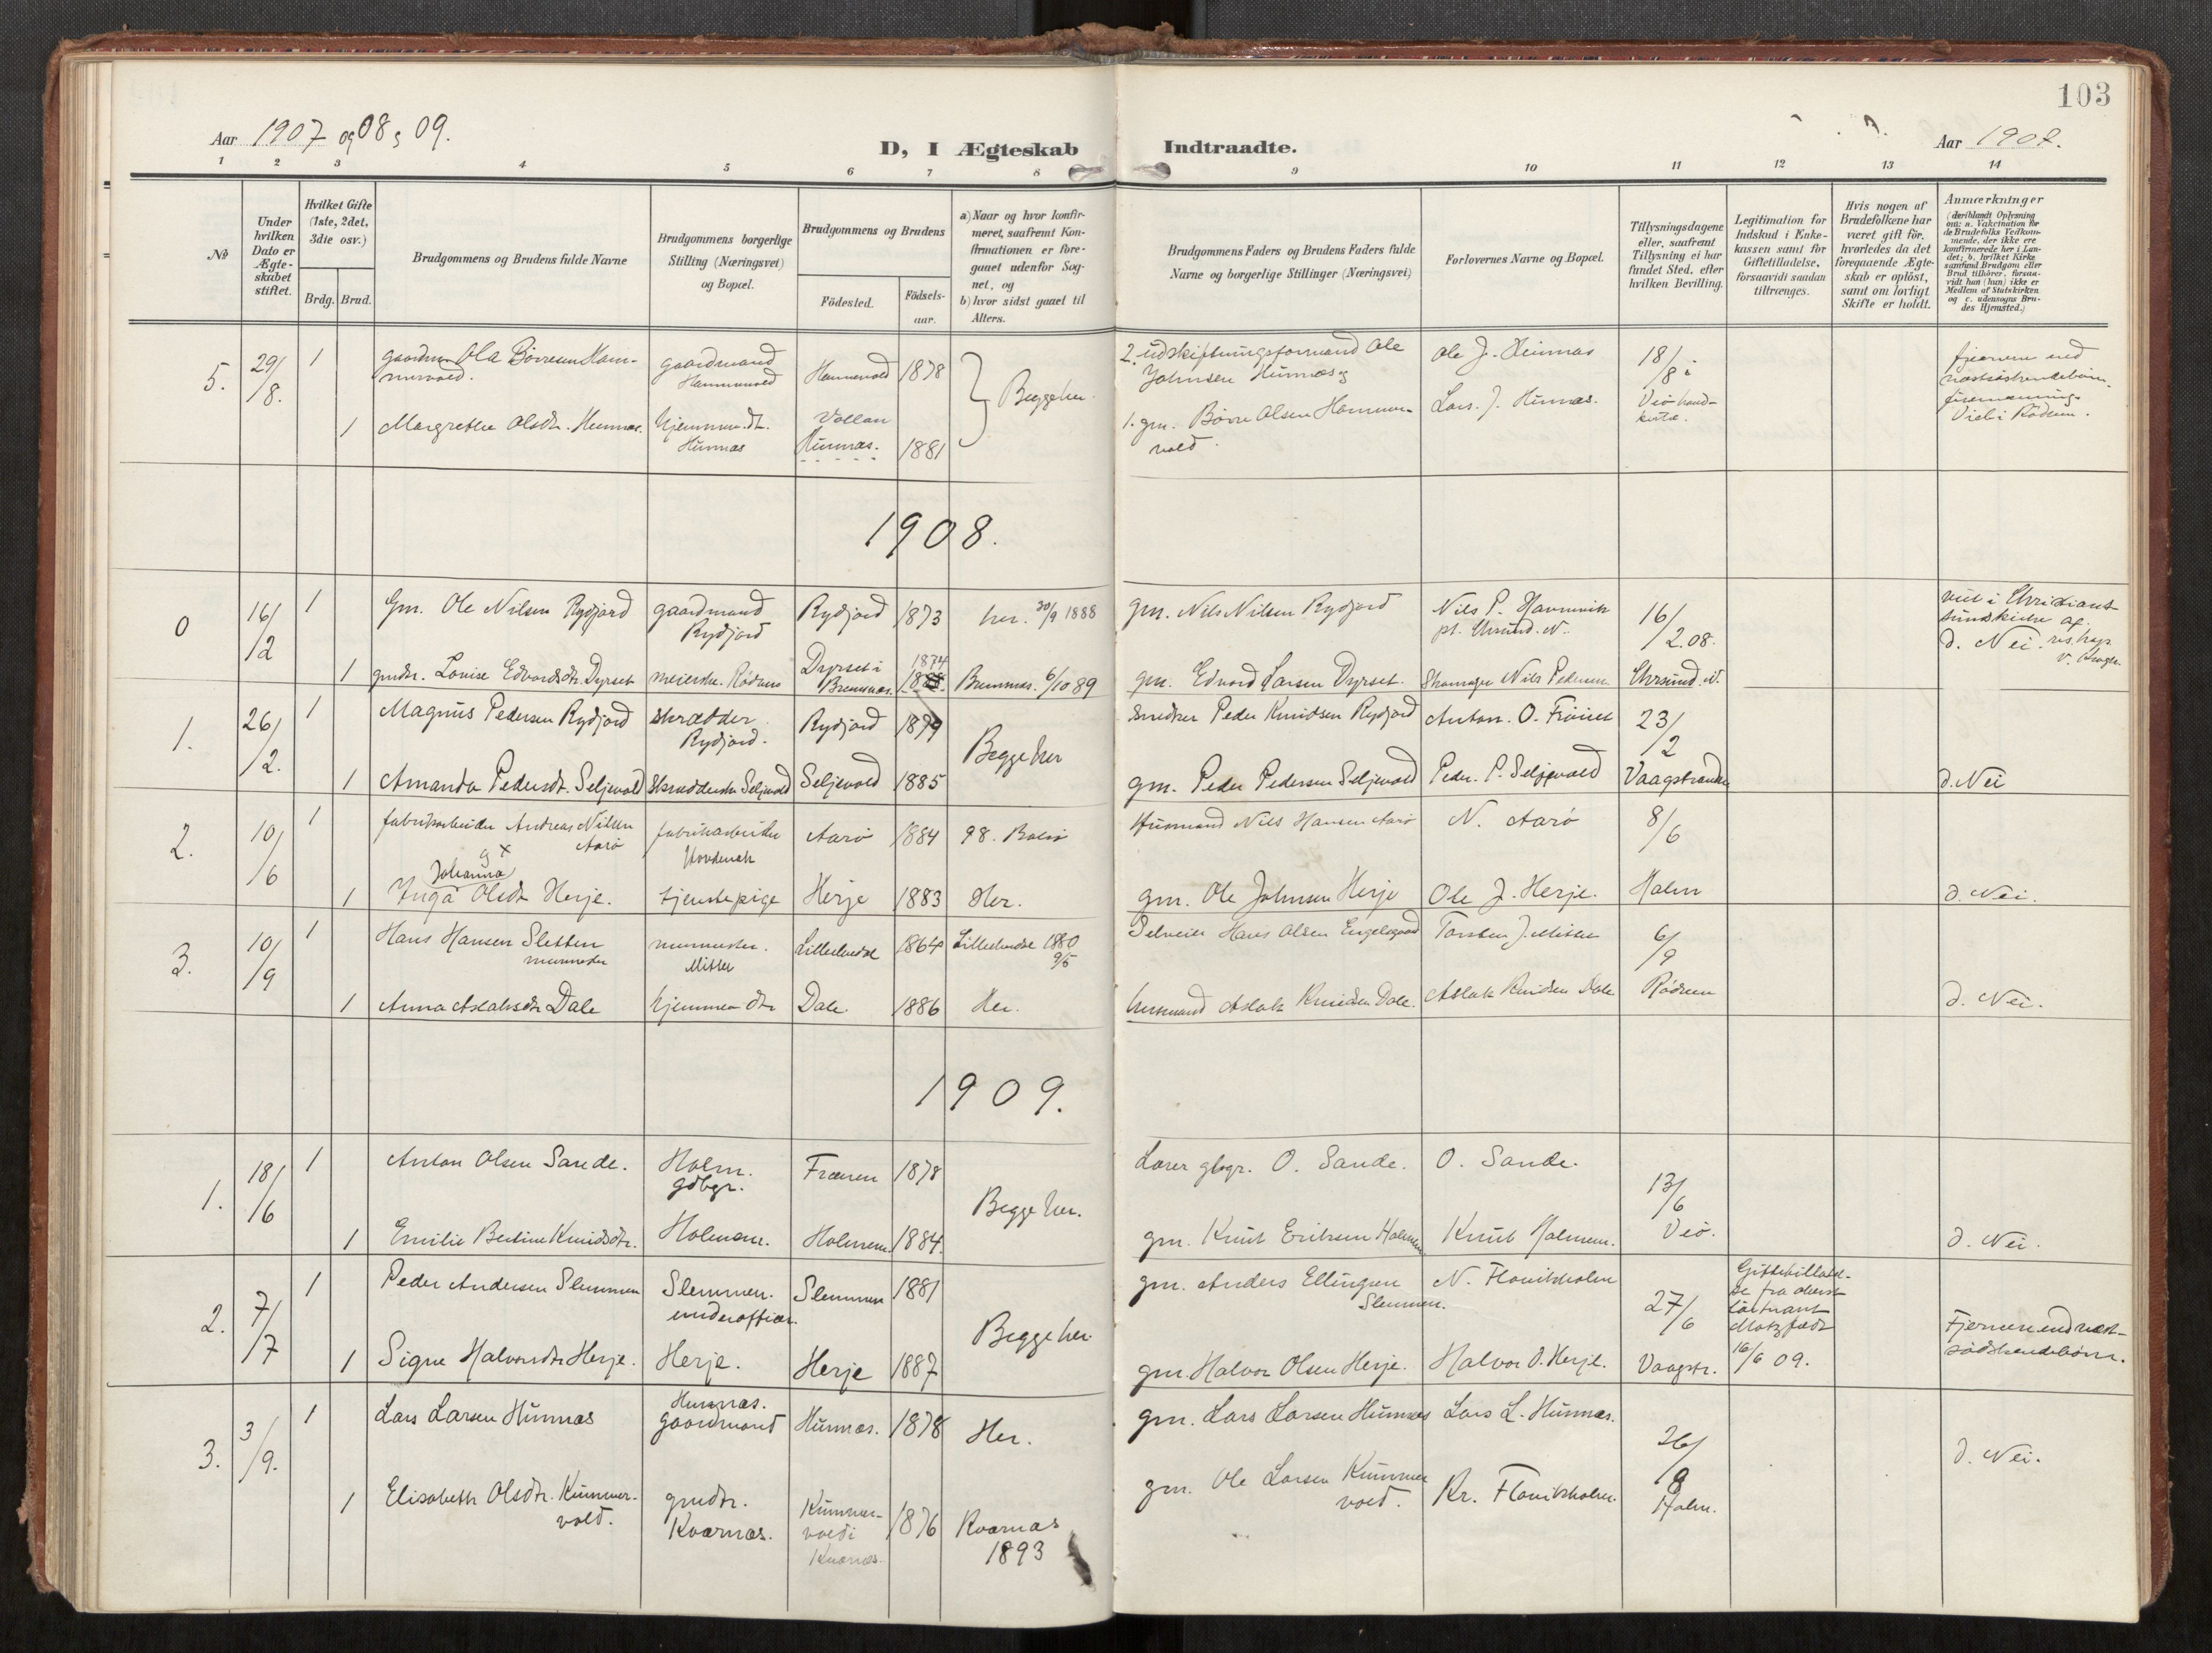 103
Aar 1907 og 08 g 09.
D, I Ægteskab Indtraadte.
Aar 1907.
1 2 3 4 5 6 7 8 9 10 11 12 13 14
No
Under hvilken Dato er Ægteskabet stiftet.
Hvilket Gifte (1ste, 2det, 3die osv.)
Brdg. Brud.
Brudgommens og Brudens fulde Navne
Brudgommens borgerlige Stilling (Næringsvei) og Bopæl.
Brudgommens og Brudens
Födested.
Födselsaar.
a) Naar og hvor konfirmeret, saafremt Konfirmationen er foregaaet udenfor Sognet, og
b) hvor sidst gaaet til Alters.
Brudgommens Faders og Brudens Faders fulde Navne og borgerlige Stillinger (Næringsvei)
Forlovernes Navne og Bopæl.
Tillysningsdagene eller, saafremt Tillysning ei har fundet Sted, efter hvilken Bevilling.
Legitimation for Indskud i Enkekassen samt for Giftetilladelse, forsaavidt saadan tiltrænges.
Hvis nogen af Brudefolkene har været gift för, hvorledes da det foregaaende Ægteskab er oplöst, samt om lovligt Skifte er holdt.
Anmærkninger
(deriblandt Oplysning om: a. Vakcination for de Brudefolks Vedkommende, der ikke ere konfirmerede her i Landet; b. hvilket Kirkesamfund Brudgom eller Brud tilhörer, forsaavidt han (hun) ikke er Medlem af Statskirken og c. udensogns Brudes Hjemsted.)
5. 29/8. 1 Ola Børresen Hammervold. gaardmand Hammervold Hammervold 1878 Begge her.
2. udskiftningsformand Ole Johnsen Hunnes og Ole J. Hunnes 18/8 i
1 Margrethe Olsdt. Hunnes. hjemmev. dt. Hunnes Vollan Hunnes. 1881
1. gm. Børre Olsen Hammervold. Lars. J. Hunnes. Veö
fjernere end næstsöskendebörn.
Viet i Rödven.
1908.
0 16/2 1 Gm. Ole Nilsen Rydjord gaardmand Rydjord Rydjord 1873 her. 30/9 1888
gm. Nils Nilsen Rydjord Nils P. Havnvik pt. Chrsund. N. 16/2.08.
viet i Christianssunds kirke af res. kap.
d. Nei.
1 gmdtr. Louise Edvardsdtr. Dyrset meierske. Rödven Dyrset i Bremsnes. 1874 Bremsnes. 6/10 89
gm. Edvard Larsen Dyrset. Skomager Nils Pedersen Chrsund. N.
1. 26/2. 1 Magnus Pedersen Rydjord skrædder Rydjord. Rydjord 1879 Begge her
snedker Peder Knudsen Rydjord Anton. O. Fröiset 23/2
1 Amanda Pedersdt. Seljevold Skrædderske Seljevold Seljevold 1885
gm. Peder Pedersen Seljevold Peder. P. Seljevold Vaagstranden d. Nei
2. 10/6 1 fabrikarbeider Andreas Nilsen Aarö fabrikarbeider Hovdenak Aarö 1884 98. Bolsö
Husmand Nils Hansen Aarö N. Aarö 8/6
og x
Johanna
1 Inga Olsdt. Herje. tjenestepige Herje 1883 Her.
gm. Ole Johnsen Herje Ole J. Herje. Holm d. Nei.
3. 10/9 1 Hans Hansen Sletten murmester murmester. Mittet Lillehendal 1864 Lillehendal 1880 9/5
Selveier Hans Olsen Torsten J. Mittet 6/9
1 Anna Aslaksdtr Dale hjemmev. dtr Dale. 1886 Her.
husmand Aslak Knudsen Dale. Aslak Knudsen Dale Rödven d. Nei.
1909.
1. 18/6 1 Anton Olsen Sande. Holm. gdbgr. Frænen 1878 Begge her.
Lærer gbgr. O. Sande. O. Sande. 13/6
1 Emilie Bertine Knudsdtr. Holmem. Holmem. 1884.
gm. Knut Eriksen Holmem Knut Holmem. Veö. d. Nei.
2. 7/7 1 Peder Andersen Slemmen Slemmen. underofficer. Slemmen 1881 Begge her
gm. Anders Ellingsen Slemmen. N. Flovikholm 27/6
Giftetilladelse fra oberstlöitnant Motzfeldt 16/6 09.
Fjernere end næstsödskendebörn.
1 Signe Halvorsdtr Herje. Herje. Herje 1887
gm. Halvor Olsen Herje. Halvor O. Herje. Vaagstr.
3. 3/9. 1 Lars Larsen Hunnes Hunnes. gaardmand Hunnes. 1878 Her.
gm. Lars Larsen Hunnes Lars L. Hunnes. 26/8 d. Nei.
1 Elisabeth Olsdtr. Kummervold. gmdtr. Kvernes. Kummervold i Kvernes. 1876 Kvernes 1893
gm. Ole Larsen Kummervold. Kr. Flovikholm. Holm.